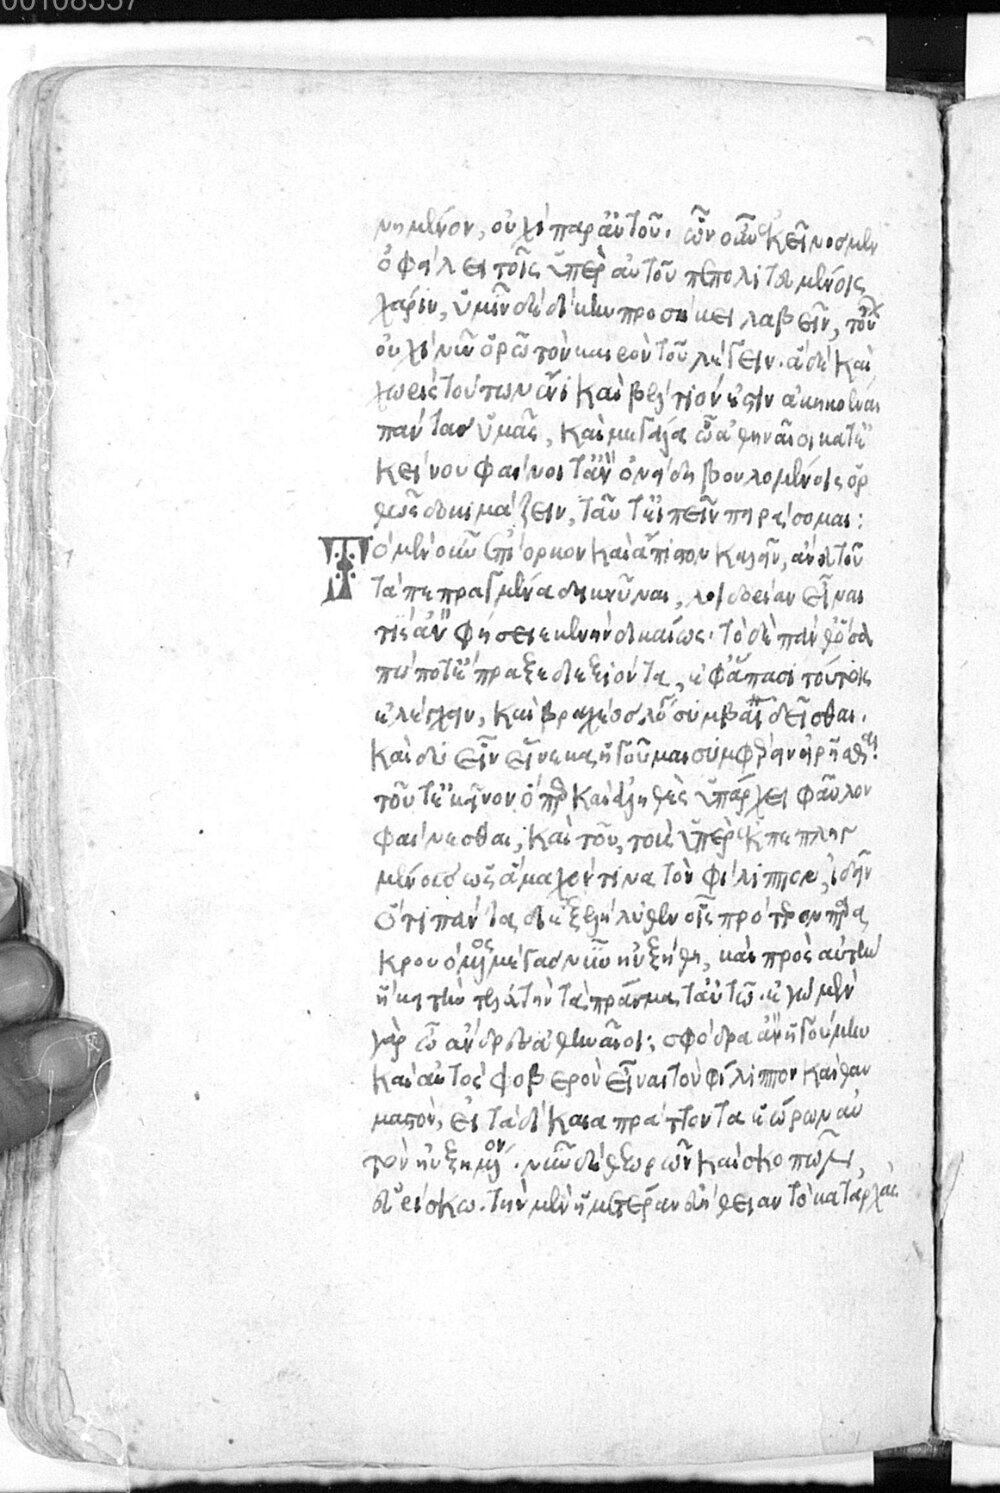 00108337
νημένον, οὐχὶ παρ' αὑτοῦ. ὧν οὖν ἐκεῖνος μὲν
ὀφείλει τοῖς ὑπὲρ αὐτοῦ πεπολιτευμένοις
χάριν, ὑμῖν δὲ δίκην προσήκει λαβεῖν, τούτων
οὐχὶ νῦν ὁρῶ τὸν καιρὸν τοῦ λέγειν. ἃ δὲ καὶ
χωρὶς τούτων ἔνι καὶ βέλτιόν ἐστιν ἀκηκοέναι
πάντας ὑμᾶς, καὶ μεγάλα ὦ ἀθηναῖοι κατ' ἐ
κείνου φαίνοιτ' ἂν ὀνείδη βουλομένοις ὀρ
θῶς δοκιμάζειν, ταῦτ' εἰπεῖν πειράσομαι:
Τὸ μὲν οὖν ἐπίορκον καὶ ἄπιστον καλεῖν, ἄνευ τοῦ
τὰ πεπραγμένα δεικνύναι, λοιδορίαν εἶναι
τὶς ἂν φήσειε κενὴν δικαίως. τὸ δὲ πάνθ' ὅσα
πώποτ' ἔπραξε διεξιόντα, ἐφ' ἅπασι τούτοις
ἐλέγχειν, καὶ βραχέος λόγου συμβαίνει δεῖσθαι.
καὶ δυεῖν εἵνεκα ἡγοῦμαι συμφέρειν εἰρῆσθαι.
τοῦ τ' ἐκεῖνον ὅπερ καὶ ἀληθὲς ὑπάρχει φαῦλον
φαίνεσθαι, καὶ τοῦ, τοὺς ὑπερεκπεπληγ
μένους ὡς ἄμαχόν τινα τὸν φίλιππον, ἰδεῖν
ὅτι πάντα διεξελήλυθεν οἷς πρότερον πα
κρουόμενος μέγας νῦν ηὐξήθη, καὶ πρὸς αὐτὴν
ἥκει τὴν τελευτὴν τὰ πράγματ' αὐτῶ. ἐγὼ μὲν
γὰρ ὦ ἄνδρες ἀθηναῖοι: σφόδρα ἂν ἡγούμην
καὶ αὐτὸς φοβερὸν εἶναι τὸν φίλιππον καὶ θαυ
μαστὸν, εἰ τὰ δίκαια πράττοντα ἑώρων αὐ
τὸν ηὐξημένον. νῦν δὲ θεωρῶν καὶ σκοπῶν,
εὑρίσκω. τὴν μὲν ἡμετέραν εὐήθειαν τὸ κατ' ἀρχὰς